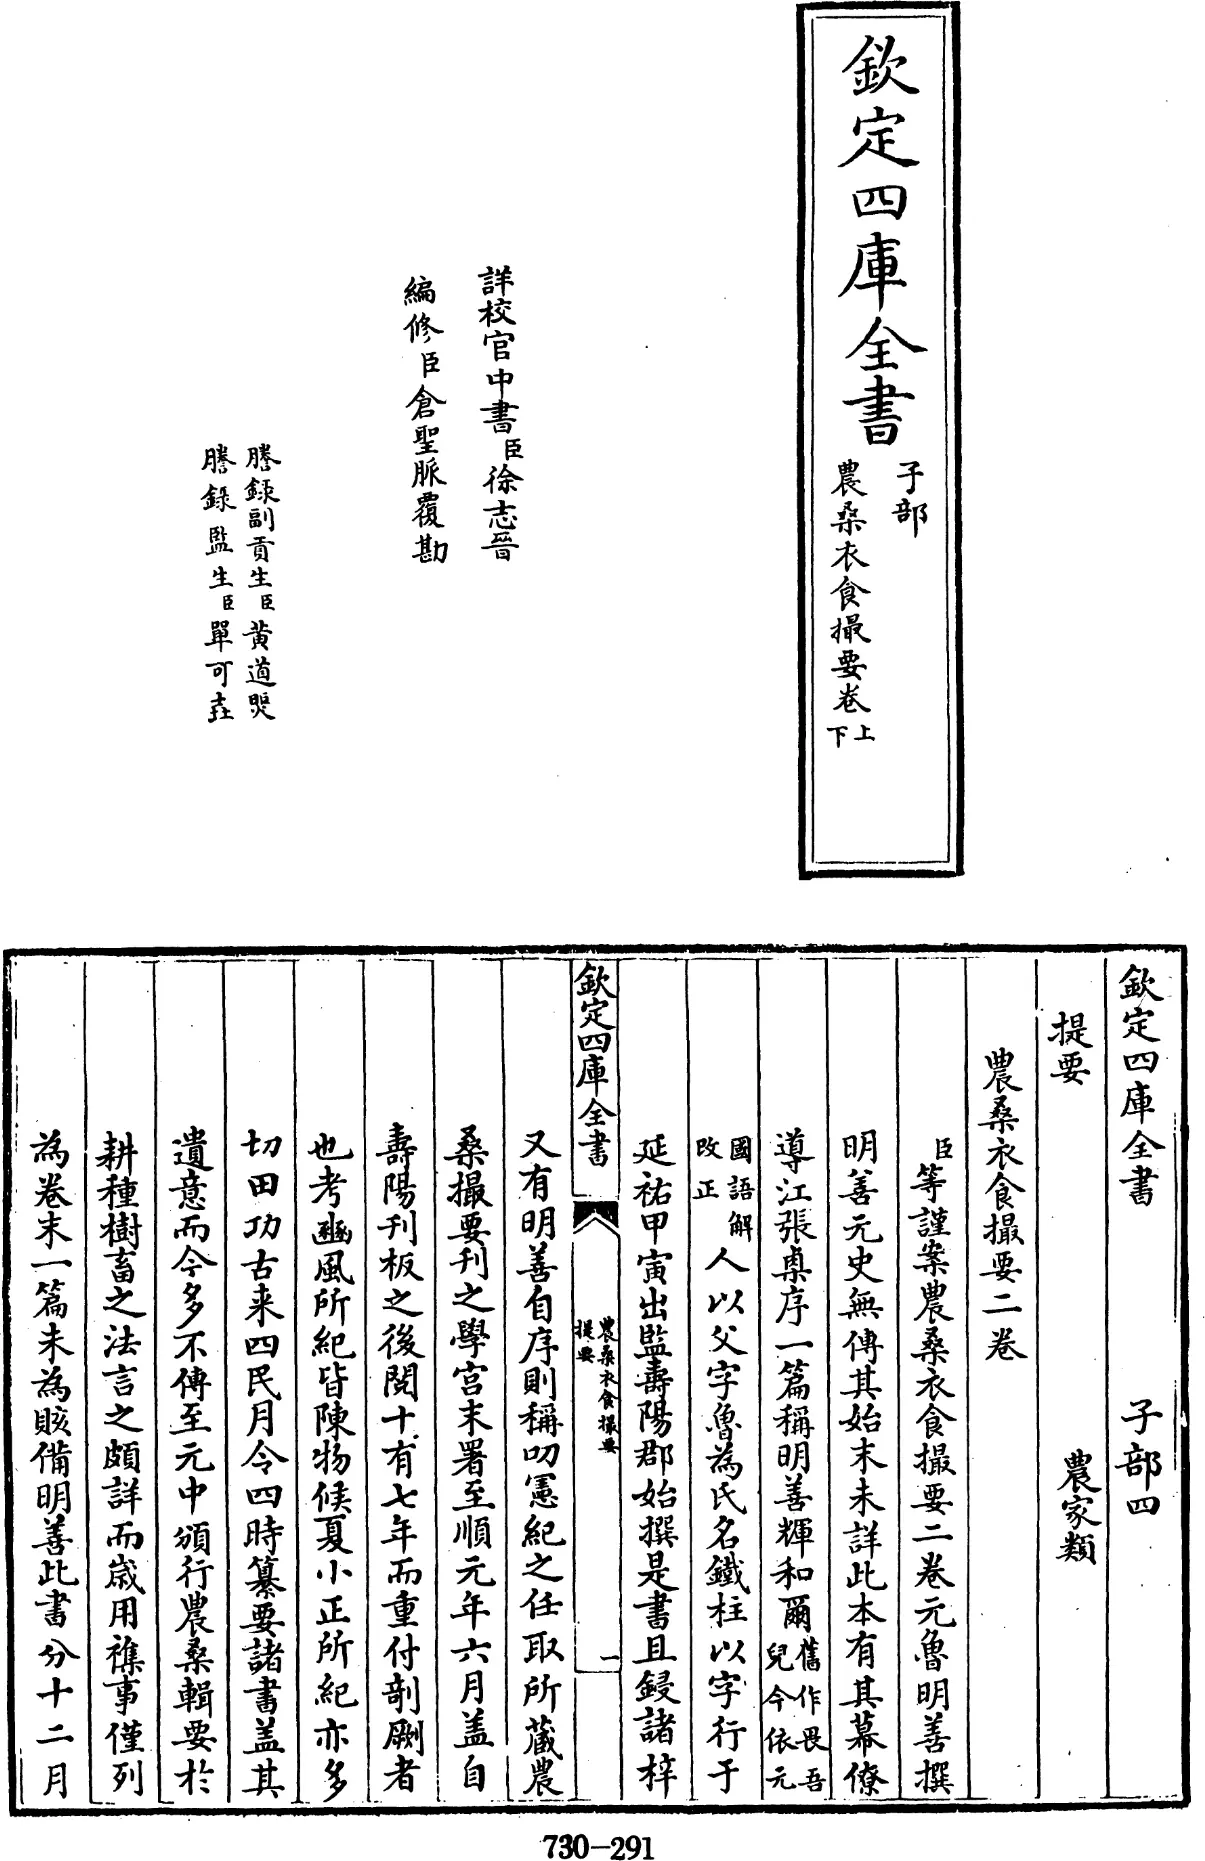 欽定四庫全書
子部
農桑衣食撮要卷上下
詳校官中書臣徐志晉
編修臣倉聖脈覆勘
謄錄副貢生臣黄道煚
謄錄監生臣單可垚
欽定四庫全書 子部四
提要 農家類
農桑衣食撮要二卷
臣等謹案農桑衣食撮要二卷元魯明善撰
明善元史無傳其始末未詳此本有其幕僚
導江張㮚序一篇稱明善輝和爾舊作畏吾兒今依元
國語解改正人以父字魯為氏名鐵柱以字行于
延祐甲寅出監壽陽郡始撰是書且鋟諸梓
欽定四庫全書
農桑衣食撮要
提要
一
又有明善自序則稱叨憲紀之任取所蔵農
桑撮要刊之學宫末署至順元年六月盖自
壽陽刊板之後閱十有七年而重付剞劂者
也考豳風所紀皆陳物候夏小正所紀亦多
切田功古来四民月令四時纂要諸書盖其
遺意而今多不傳至元中頒行農桑輯要於
耕種樹畜之法言之頗詳而嵗用襍事僅列
為卷末一篇未為賅備明善此書分十二月
730-291